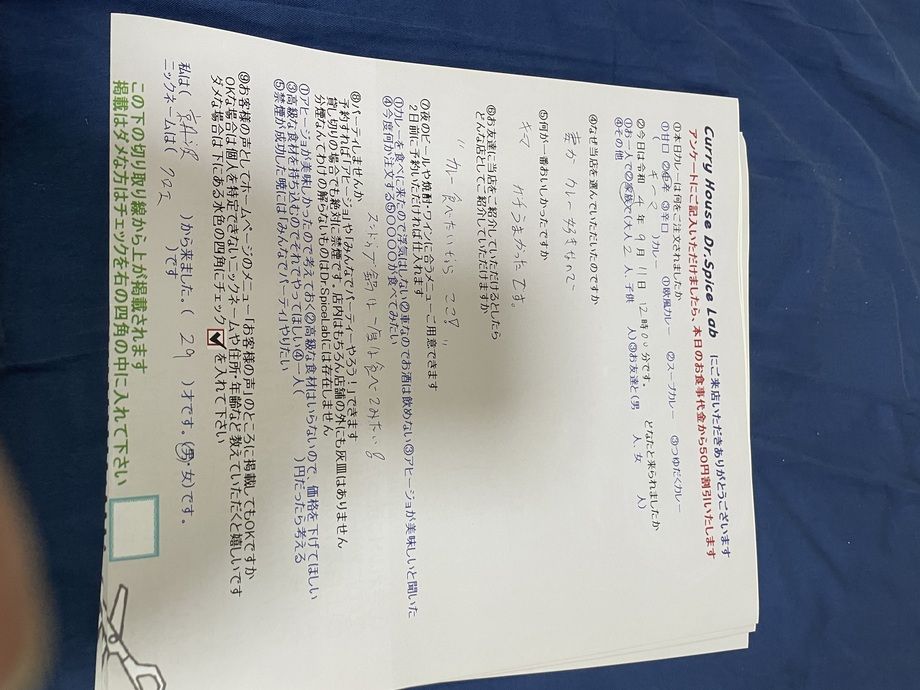 Curry House Dr.Spice Lab にご来店いただきありがとうございます
アンケートにご記入いただけましたら、本日のお食事代金から50円割引いたします
①本日カレーは何をご注文されましたか ①欧風カレー ②スープカレー ③つゆだくカレー
①甘口 ②中辛 ③辛口 ( キーマ )カレー
②今日は令和 4 年 9 月 11 日 12 時 00 分です。 どなたと来られましたか
①お一人で②家族で(大人 2 人、子供 人)③お友達と(男 人、女 人)
④その他
④なぜ当店を選んでいただいたのですか
妻が カレー 好きなので
⑤何が一番おいしかったですか
キーマ ガチうまかったです。
⑥お友達に当店をご紹介していただけるとしたら
どんな店としてご紹介していただけますか
"カレー食べたいなら ここ!!"
⑦夜のビールや焼酎・ワインに合うメニューご用意できます
2日前に予約いただければ仕入れます
①カレーを食べに来たので浮気はしない②車なのでお酒は飲めない③アヒージョが美味しいと聞いた
④今度何か注文する⑤〇〇〇〇が食べてみたい
⑧パーティしませんか
予約すれば「アヒージョ」や「みんなでパーティーやろう!」できます
貸し切りの場合でも絶対に禁煙です。店内はもちろん店舗の外にも灰皿はありません
分煙なんてわけの解らないものはDr.SpiceLabには存在しません
①アヒージョが美味しかったので考えておく②高級な食材はいらないので、価格を下げてほしい
③高級な食材を持ち込むのでそれでやってほしい④一人( )円だったら考える
⑤禁煙が成功した暁には「みんなでパーティ」やりたい
⑨お客様の声としてホームページのメニュー「お客様の声」のところに掲載してもOKですか
OKな場合は個人を特定できないニックネームや住所、年齢など教えていただくと嬉しいです
ダメな場合は下にある水色の四角にチェック ✓ を入れて下さい
私は( )から来ました。( 29 )才です。(男・女)です。
ニックネームは( )です
この下の切り取り線から上が掲載されます
掲載はダメな方はチェックを右の四角の中に入れて下さい